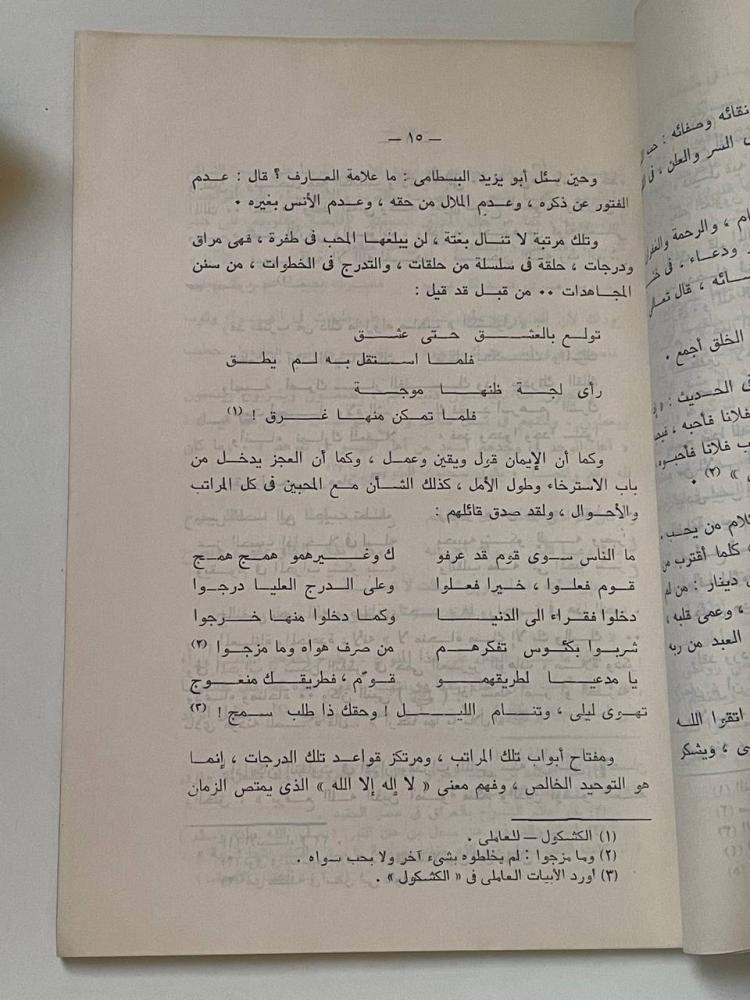 — ١٥ —
وحين سئل أبو يزيد البسطامى : ما علامة العارف ؟ قال : عدم
الفتور عن ذكره ، وعدم الملال من حقه ، وعدم الأنس بغيره ٠
وتلك مرتبة لا تنال بغتة ، لن يبلغها المحب فى طفرة ، فهى مراق
ودرجات ، حلقة فى سلسلة من حلقات ، والتدرج فى الخطوات ، من سنن
المجاهدات ٠٠ من قبل قد قيل :
تولع بالعشق حتى عشق
فلما استقل به لم يطق
رأى لجة ظنها موجة
فلما تمكن منها غرق ! (١)
وكما أن الإيمان قول ويقين وعمل ، وكما أن العجز يدخل من
باب الاسترخاء وطول الأمل ، كذلك الشأن مع المحبين فى كل المراتب
والأحوال ، ولقد صدق قائلهم :
ما الناس سوى قوم قد عرفو ك وغيرهمو همج همج
قوم فعلوا ، خيرا فعلوا وعلى الدرج العليا درجوا
دخلوا فقراء الى الدنيا وكما دخلوا منها خرجوا
شربوا بكئوس تفكرهم من صرف هواه وما مزجوا (٢)
يا مدعيا لطريقهمو قوّم ، فطريقك منعوج
تهوى ليلى ، وتنام الليل ! وحقك ذا طلب سمج ! (٣)
ومفتاح أبواب تلك المراتب ، ومرتكز قواعد تلك الدرجات ، إنما
هو التوحيد الخالص ، وفهم معنى « لا إله إلا الله » الذى يمتص الزمان
(١) الكشكول — للعاملى .
(٢) وما مزجوا : لم يخلطوه بشىء آخر ولا بحب سواه .
(٣) أورد الأبيات العاملى فى « الكشكول » .
نقائه وصفائه :
السر والعلن ، فى
، والرحمة
ودعاء ، فى
، قال
الخلق أجمع .
فى الحديث :
فلانا فأحبه ،
فلانا فأحبوه
» (٢) .
من يحب ،
، كلما أقترب من
دينار : من لم
، وعمى قلبه ،
العبد من ربه
اتقوا الله
، ويشكر